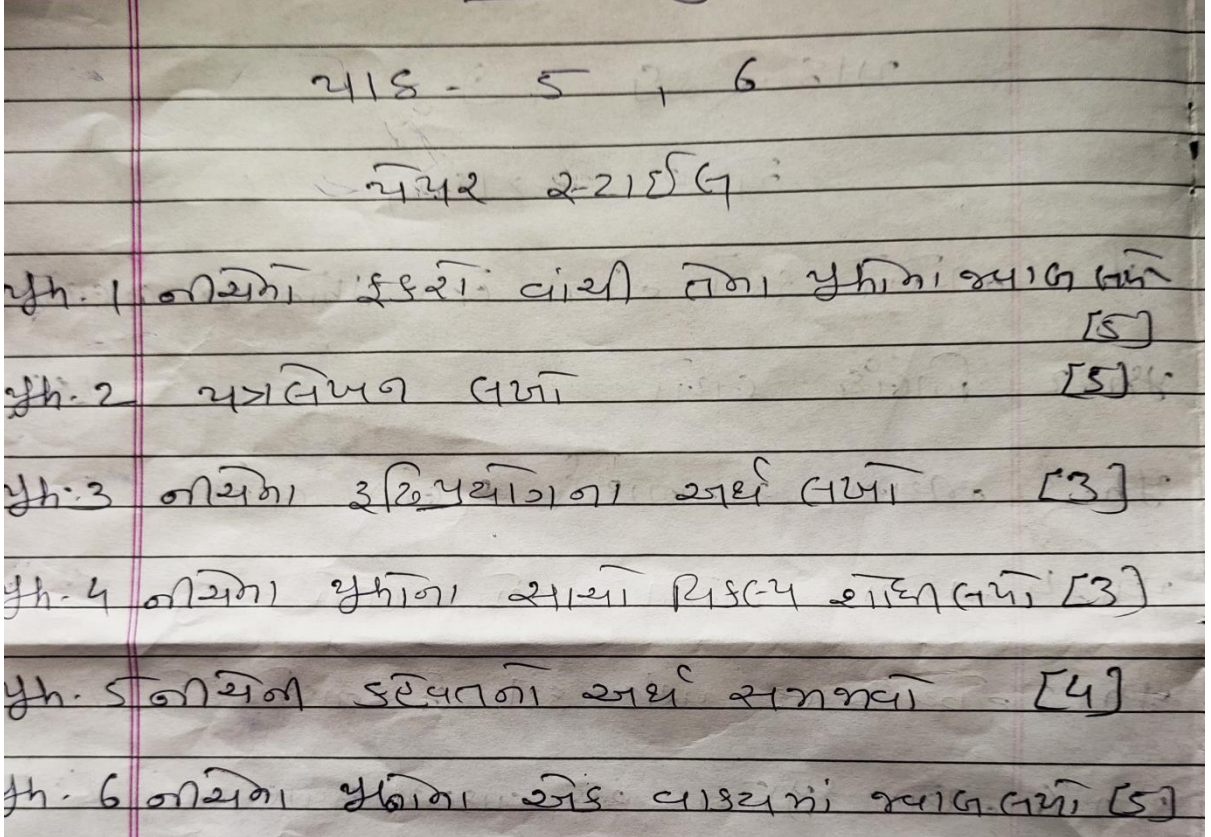 પાઠ - 5 , 6
પેપર સ્ટાઈલ :
પ્રશ્ન. 1 નીચેનો ફકરો વાંચી તેના પ્રશ્નોના જવાબ લખો
[5]
પ્રશ્ન. 2 પત્રલેખન લખો [5]
પ્રશ્ન. 3 નીચેના રૂઢિપ્રયોગના અર્થ લખો . [3]
પ્રશ્ન. 4 નીચેના પ્રશ્નોના સાચો વિકલ્પ શોધી લખો [3]
પ્રશ્ન. 5 નીચેની કહેવતનો અર્થ સમજાવો [4]
પ્રશ્ન. 6 નીચેના પ્રશ્નોના એક વાક્યમાં જવાબ લખો [5]